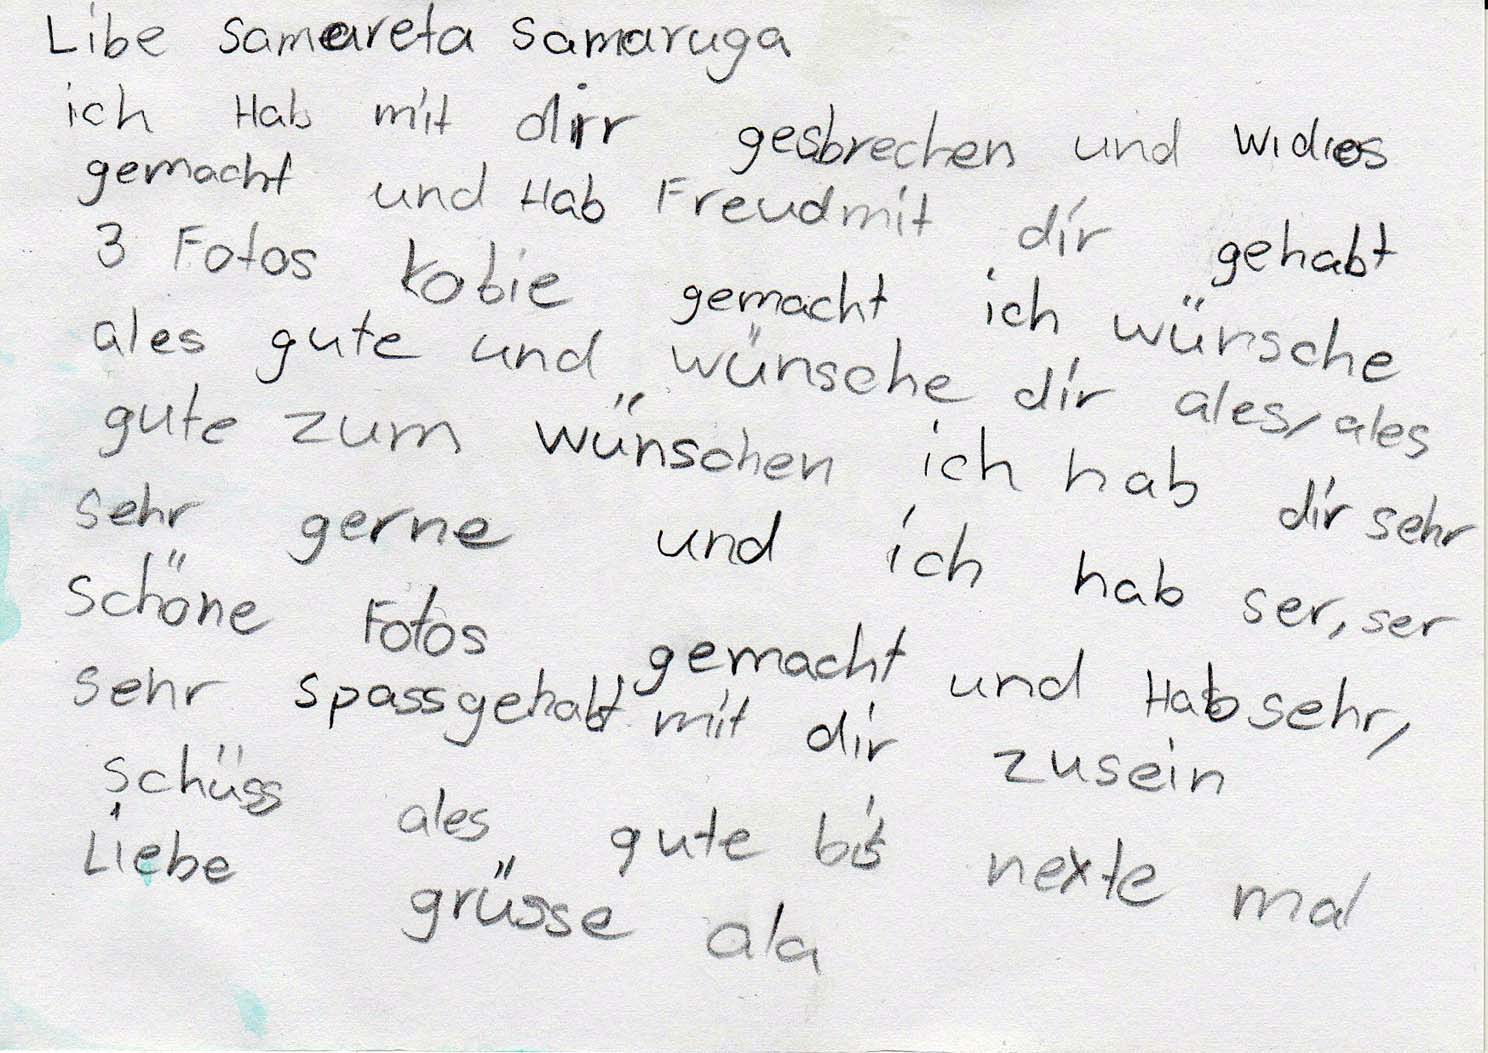 Libe Samareta Samaruga
ich Hab mit dirr gesbrechen und Widios
gemacht und Hab Freud mit dir gehabt
3 Fotos kobie gemacht ich wünsche
ales gute und wünsche dir ales, ales
gute zum wünschen ich hab dir sehr
sehr gerne und ich hab ser, ser
schöne Fotos gemacht und Hab sehr,
sehr spass gehabt mit dir zusein
schüss ales gute bis nexte mal
Liebe grüsse ala